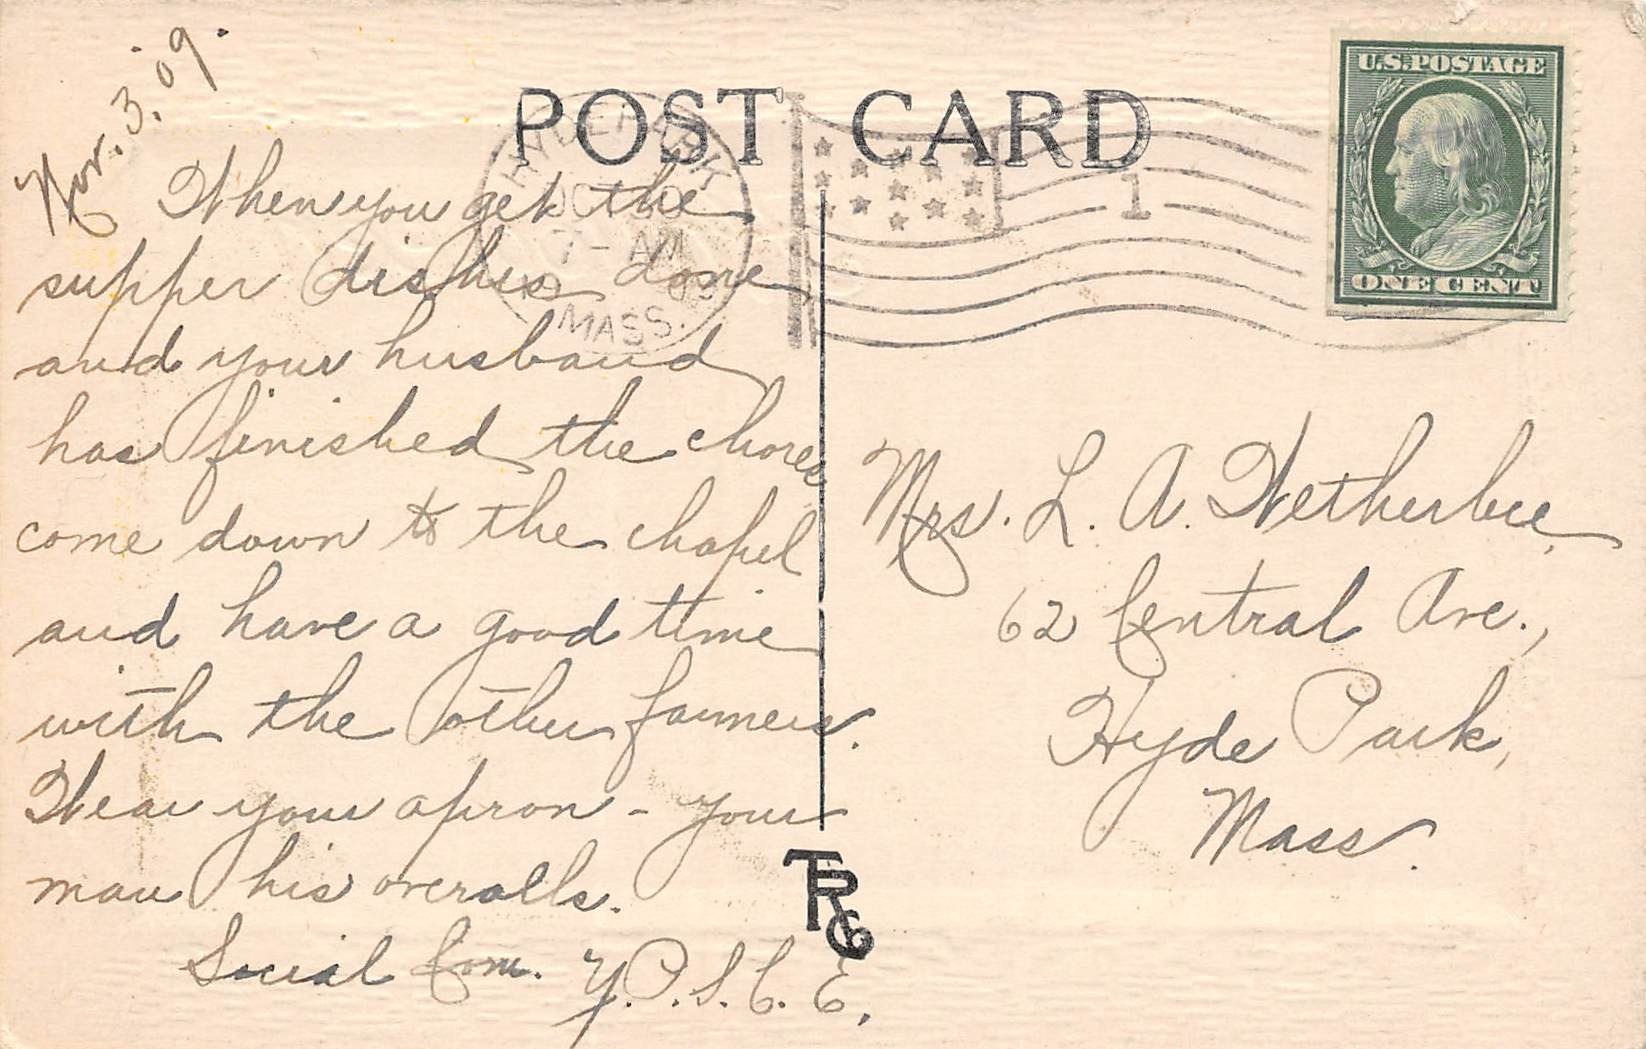 Nov. 3. '09.
POST CARD
HYDE PARK
OCT 30
7 - AM
MASS.
1
U.S. POSTAGE
ONE CENT
When you get the
supper dishes done
and your husband
has finished the chores
come down to the chapel
and have a good time
with the other farmers.
Wear your apron - your
man his overalls.
Social Com. Y.P.S.C.E.
Mrs. L. A. Wetherbee,
62 Central Ave.,
Hyde Park,
Mass.